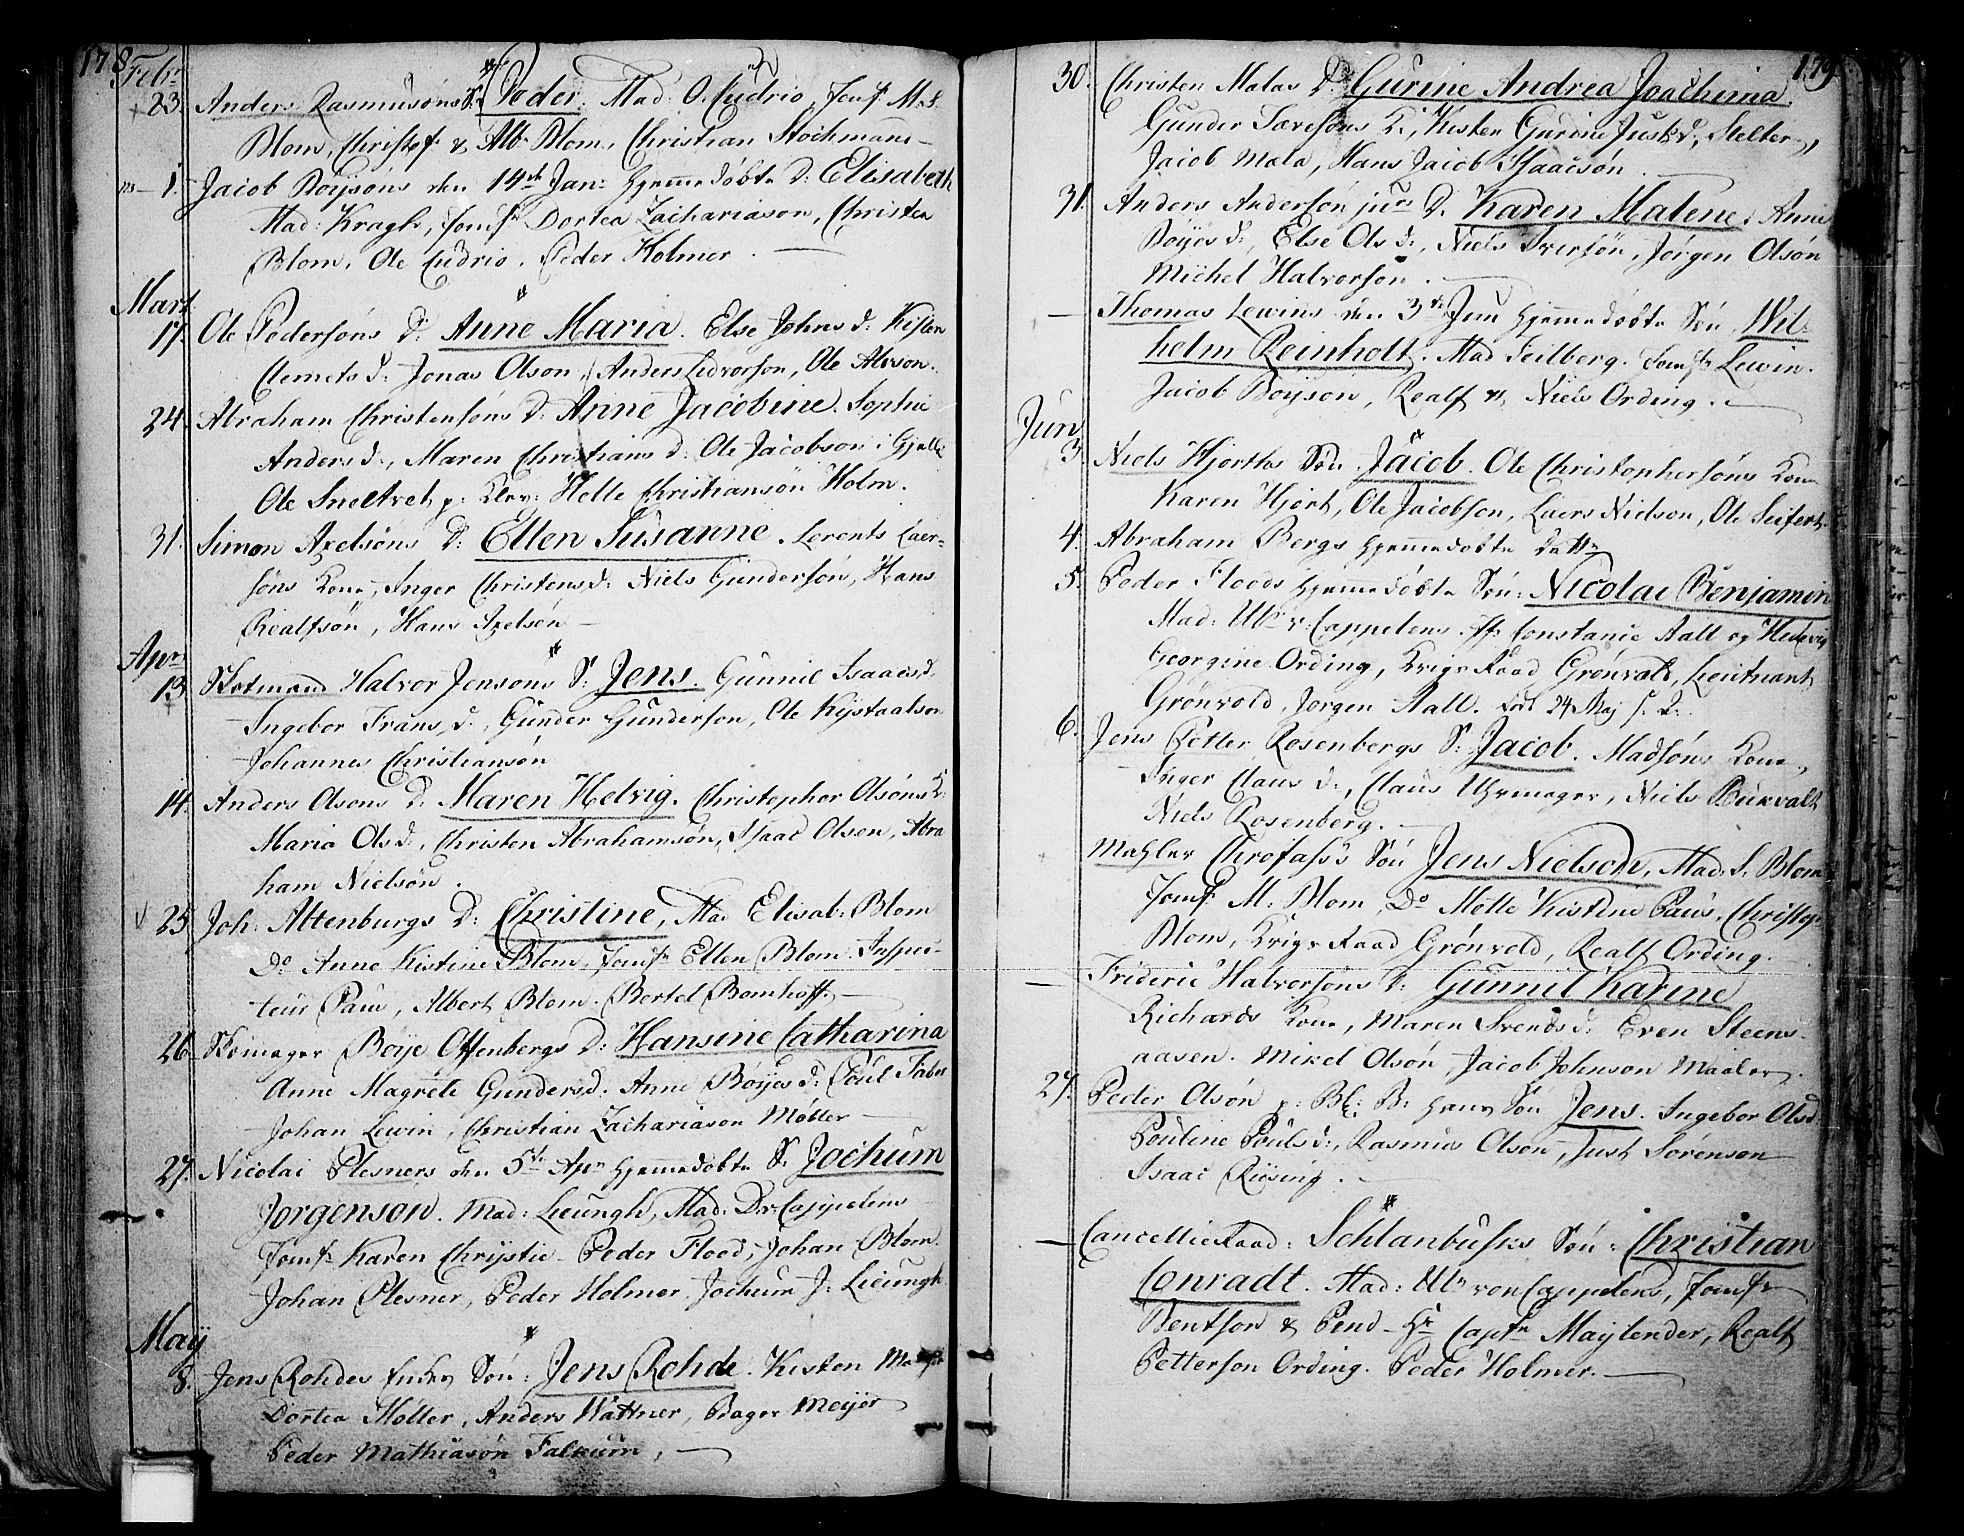 178
Febr
23. Anders Rasmusøns S. Peder. Mad: O. Cudrio, Jomf. M. S.
Blom, Christof & Alb. Blom, Christian Stochmann
1. Jacob Boysøns den 14de Jan: hjemmedøbte D: Elisabeth
Mad: Kragh, Jomfr Dortea Zachariason, Christen
Blom, Ole Cudrio, Peder Holmer.
Mart
17. Ole Pedersøns D: Anne Maria. Else Johns d: Kisten
Clemets d: Jonas Olson, Anders Ledvorson, Ole Alvson.
24. Abraham Christensøns D: Anne Jacobine. Sophie
Anders d:, Maren Christians d: Ole Jacobson i
Ole Sneltvet p: Klev: Helle Christiansøn Holm.
31. Simon Axelsøns D: Ellen Susanne. Lorents Laer-
søns Kone, Inger Christens d: Niels Gundersøn, Hans
Realfsøn, Hans Axelsøn
Apr
13. Halvor Jensøns S: Jens. Gunnil Isaacs d.
Ingebor Frans d:, Gunder Gundersøn, Ole Kystaalson
Johannes Christiansøn
14. Anders Olsøns D: Maren Helvig. Christopher Olsøns K:
Maria Ols d:, Christen Abrahamsøn, Isaac Olsen, Abra
ham Nielsøn.
25. Joh: Altenburgs D: Christine, Mad Elisab: Blom
Do Anne Kistine Blom, Jomfr Ellen Blom. Inspec-
teur Paus, Albert Blom. Bertel Bomhoff.
26. Skomager Böije Offenbergs D: Hansine Catharina
Anne Magrete Gunders d. Anne Böijes d: Poul Faber
Johan Lewin, Christian Zachariason Møller
27. Nicolai Plesners den 5te Apr hjemmedøbte S. Jochum
Jørgensøn. Mad: Lieungh, Mad: D. v: Cappelens
Jomfr Karen Chrystie Peder Flood, Johan Blom
Johan Plesner, Peder Holmer, Jochum J: Lieungh
Maij
8. Jens Rohdes Søn: Jens Rohde. Kisten
Dortea Holler, Anders Wattner, Bager Meijer
Peder Mathiasøn Falkum,
179
30. Christen Malas D. Gurine Andrea Joachima.
Gunder Tavesøns K:, Kisten Gurine Justs d:
Jacob Mala, Hans Jacob Isaacsøn.
31. Anders Andersøn D. Karen Malene. Anne
Böijes d:, Else Ols d:, Niels Iversøn, Jørgen Olsøn
Michel Halvorsøn.
Thomas Lewins den 3de Jun hjemmedøbte Søn Wil-
helm Reinholt. Mad Feilberg. Jomfr Lewin.
Jacob Boyson, Realf & Niels Ording.
Jun
3. Niels Hjorths Søn Jacob. Ole Christophersøns Kone
Karen Hjort, Ole Jacobson, Laers Nielson, Ole Seifert.
4. Abraham Bergs hjemmedøbte Datter
5. Peder Floods hjemmedøbte Søn: Nicolai Benjamin
Mad: Ulr v: Cappelens. Constance Aall og Hedevig
Georgine Ording, Krigs Raad Grønvald, Lieutnant
Grønvold, Jorgen Aall. født 24 Maj
6. Jens Petter Rosenbergs S: Jacob. Madsøns Kone,
Inger Claus d:, Claus Uhrmager, Niels Bukvalt
Niels Rosenberg.
Mahler Søn Jens Nielsen, Mad: S: Blom
Jomfr M: Blom Do Mette Kistine Paus. Christop
Blom, Krigs Raad Grønvold, Realf Ording.
Frideric Halvorsøns D: Gunnil Karine
Richards Kone, Maren Svends d: Even Steens-
aasen. Mikel Olsøn, Jacob Johnson Maaler.
27. Peder Olsøn p: Bl: B: hans Søn Jens. Ingebor Ols d
Pouline Pouls d:, Rasmus Olson, Just Sørenson
Isaac Riising.
Cancellie Raad: Schlanbusks Søn: Christian
Conradt. Mad: Ulr von Cappelens, Jomfr
Bentson & Pend - Hr Captn Maylender, Realf
Petterson Ording. Peder Holmer.